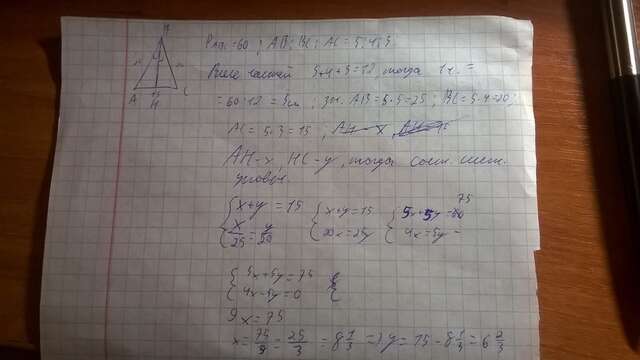 P ABC=60 ; AB:BC:AC=5:4:3
Всего частей 5+4+3=12, тогда 1ч.=
=60:12=5см ; зн. AB=5·5=25 ; BC=5·4=20;
AC=5·3=15 ;
AH-x HC-y, тогда сост. сист.
уравн.
x+y=15
x/25=y/20
x+y=15
20x=25y
5x+5y=75
4x=5y
5x+5y=75
4x-5y=0
9x=75
x=75/9=25/3=8 1/3 => y=15-8 1/3=6 2/3
A
H
C
15